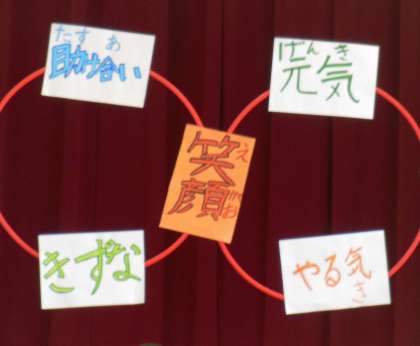 たす あ
助け合い
げん き
元気
笑顔
え がお
きずな
やる気
き